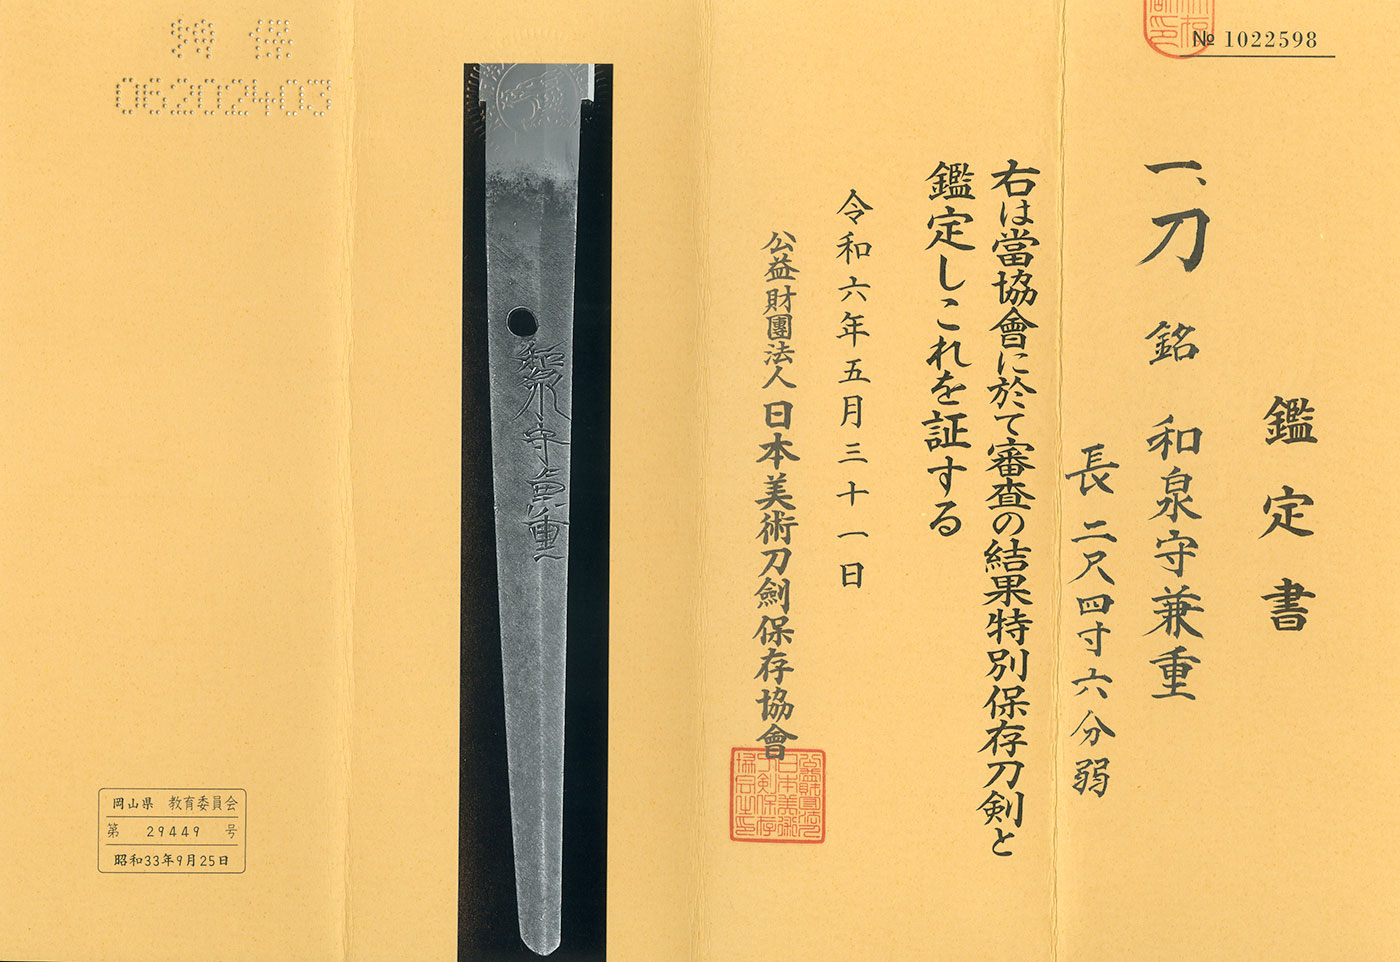 № 1022598
鑑定書
一、刀 銘 和泉守兼重
長二尺四寸六分弱
右は當協會に於て審査の結果特別保存刀剣と
鑑定しこれを証する
令和六年五月三十一日
公益財團法人 日本美術刀劍保存協會
和泉守兼重
特 保
06202403
岡山県 教育委員会
第 29449 号
昭和33年9月25日